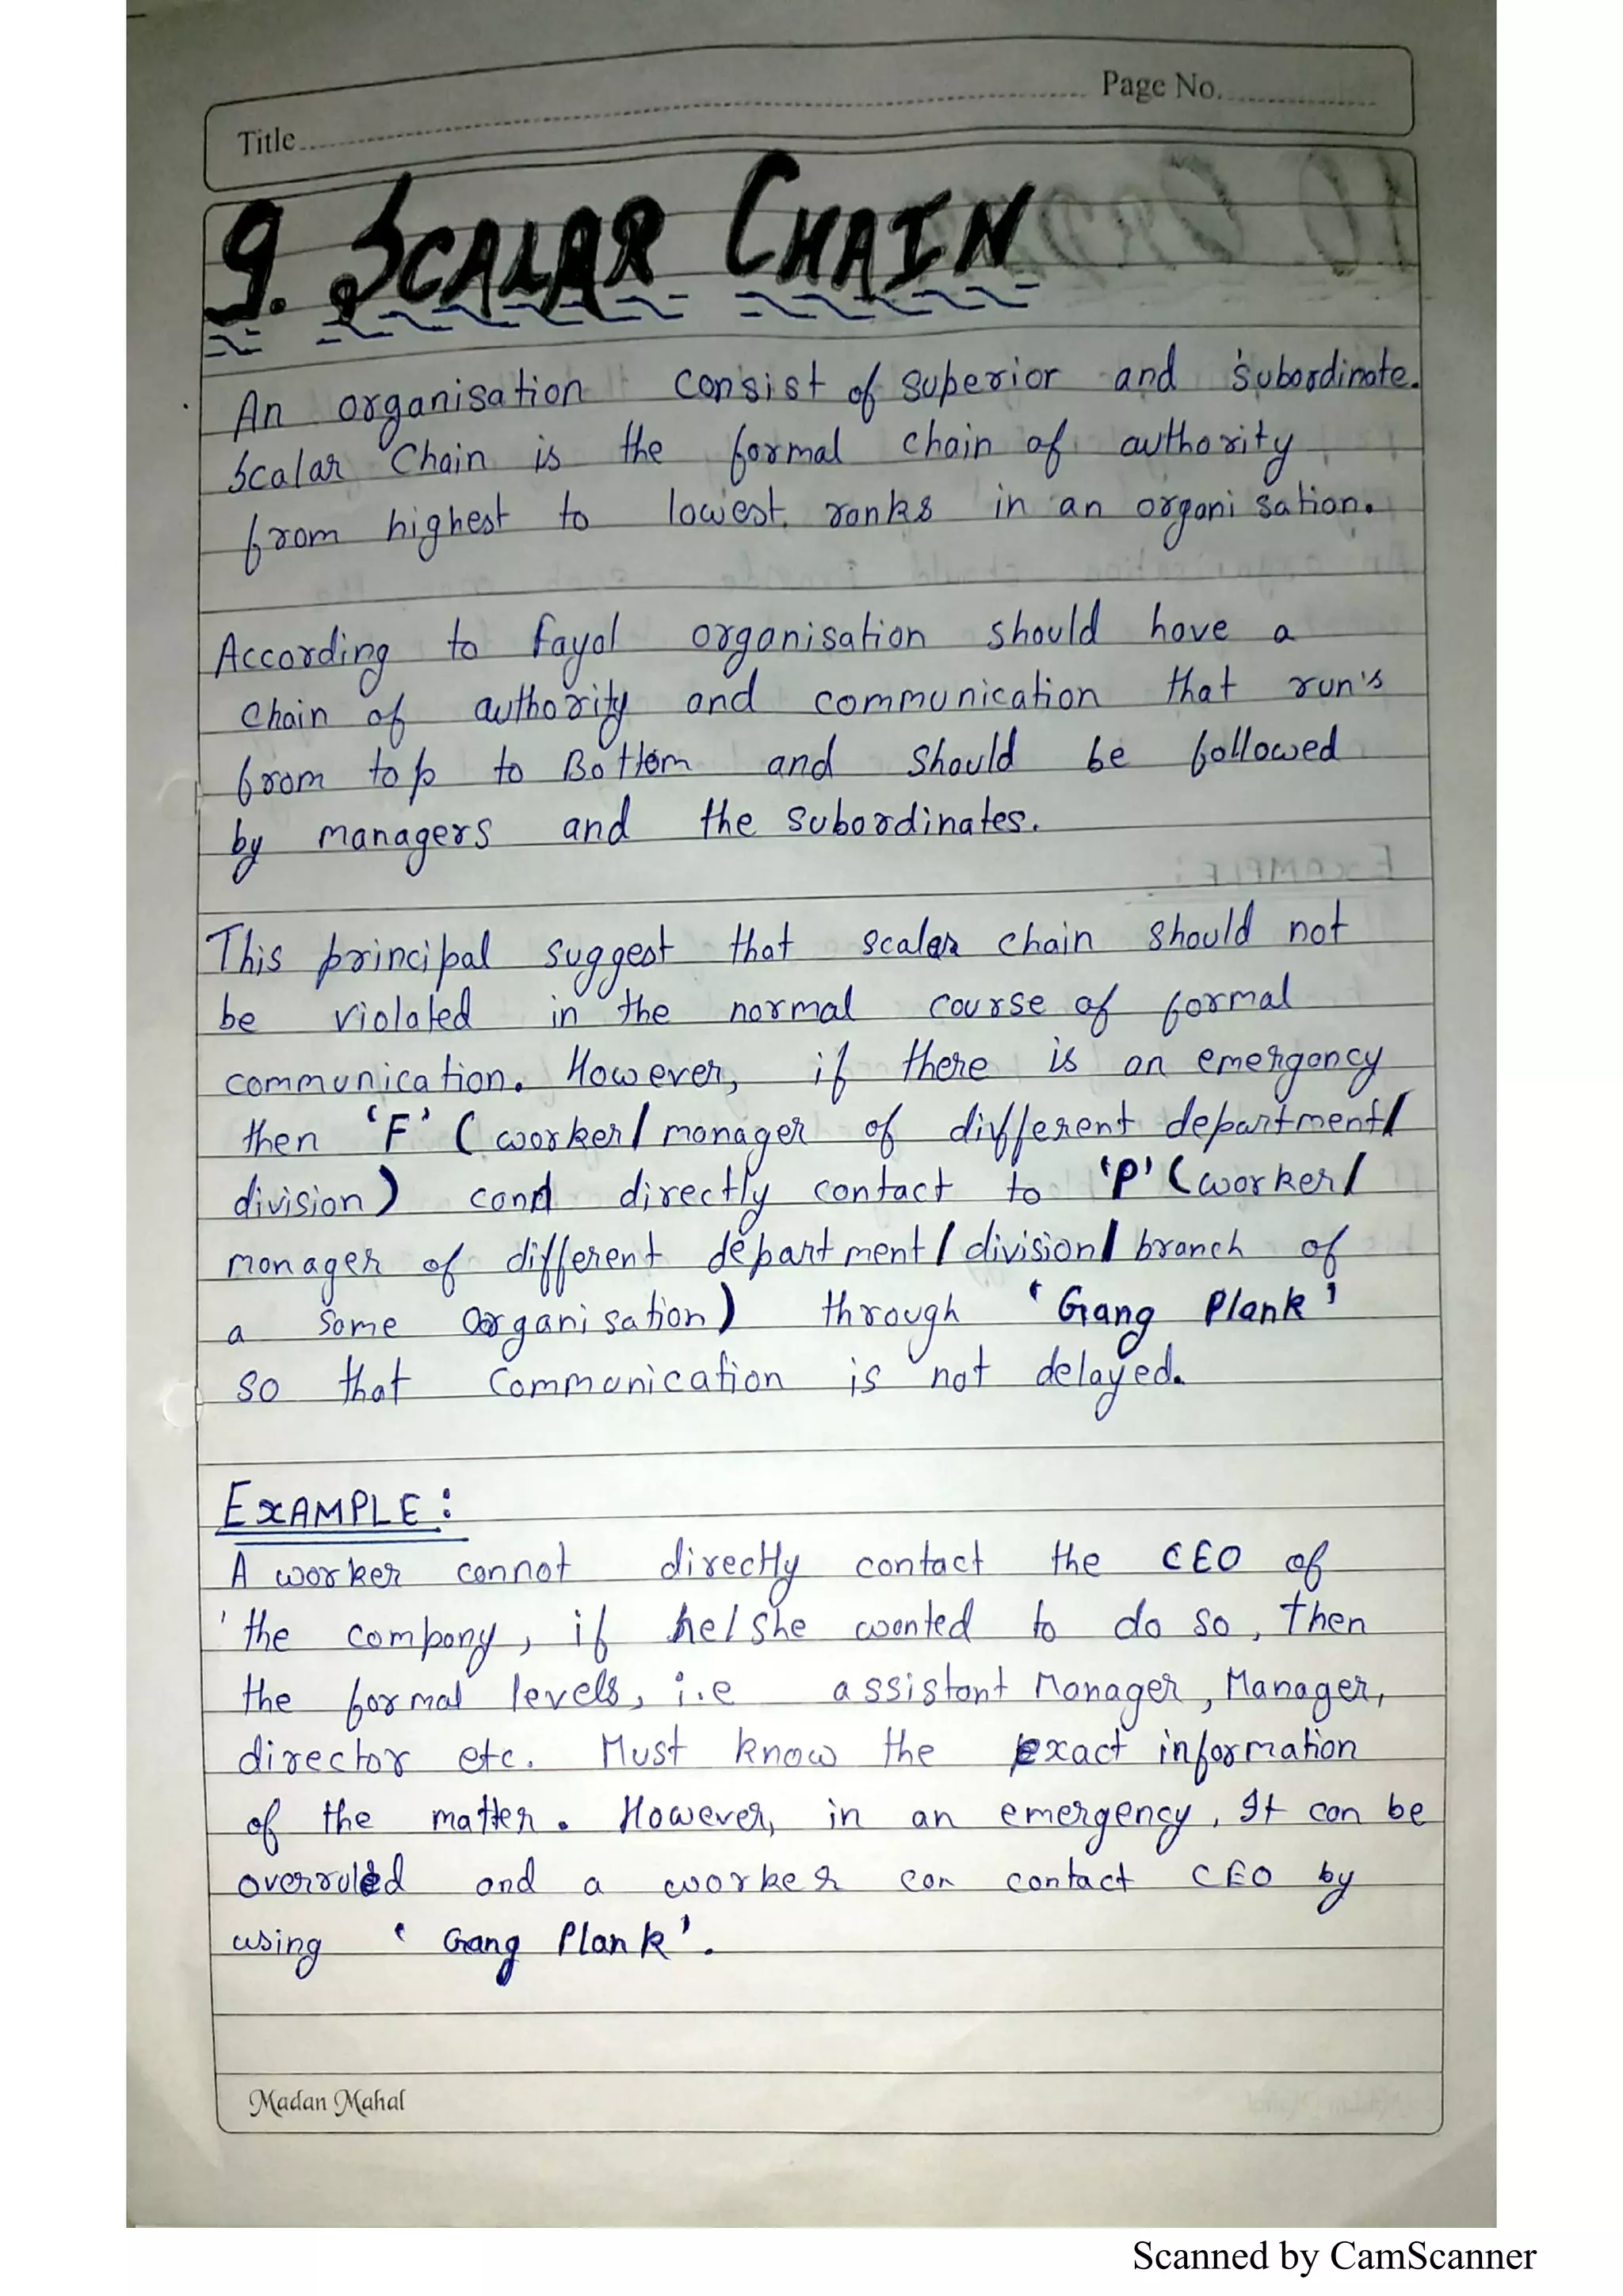 Title
Page No.
9. SCALAR CHAIN
An organisation consist of superior and subordinate.
Scalar Chain is the formal chain of authority
from highest to lowest ranks in an organisation.
According to Fayol organisation should have a
Chain of authority and communication that run's
from top to Bottom and should be followed
by managers and the subordinates.
This principal suggest that scalar chain should not
be violated in the normal course of formal
communication. However, if there is an emergency
then 'F' (worker/manager of different department/
division) directly contact to 'P' (worker/
manager of different department/division/branch of
a same organisation) through 'Gang Plank'
so that Communication is not delayed.
EXAMPLE:
A worker cannot directly contact the CEO of
the company, if he/she wanted to do so, then
the formal levels, i.e assistant Manager, Manager,
director etc. Must know the exact information
of the matter. However, in an emergency, It can be
overruled and a worker can contact CEO by
using 'Gang Plank'.
Madan Mahal
Scanned by CamScanner